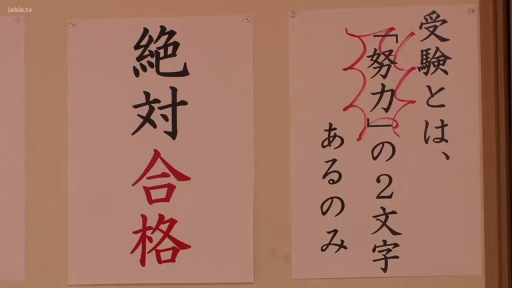 jable.tv
受験とは、
「努力」の2文字
あるのみ
絶対合格